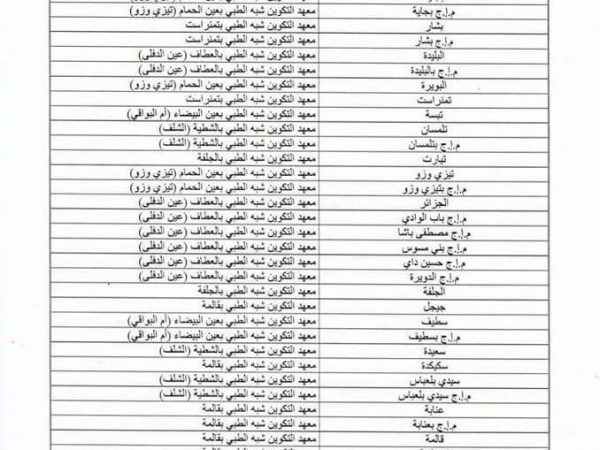 م.إ.ج بجاية معهد التكوين شبه الطبي بعين الحمام (تيزي وزو)
بشار معهد التكوين شبه الطبي بتمنراست
م.إ.ج بشار معهد التكوين شبه الطبي بتمنراست
البليدة معهد التكوين شبه الطبي بالعطاف (عين الدفلى)
م.إ.ج بالبليدة معهد التكوين شبه الطبي بالعطاف (عين الدفلى)
البويرة معهد التكوين شبه الطبي بعين الحمام (تيزي وزو)
تمنراست معهد التكوين شبه الطبي بتمنراست
تبسة معهد التكوين شبه الطبي بعين البيضاء (أم البواقي)
تلمسان معهد التكوين شبه الطبي بالشطية (الشلف)
م.إ.ج بتلمسان معهد التكوين شبه الطبي بالشطية (الشلف)
تيارت معهد التكوين شبه الطبي بالجلفة
تيزي وزو معهد التكوين شبه الطبي بعين الحمام (تيزي وزو)
م.إ.ج بتيزي وزو معهد التكوين شبه الطبي بعين الحمام (تيزي وزو)
الجزائر معهد التكوين شبه الطبي بالعطاف (عين الدفلى)
م.إ.ج باب الوادي معهد التكوين شبه الطبي بالعطاف (عين الدفلى)
م.إ.ج مصطفى باشا معهد التكوين شبه الطبي بالعطاف (عين الدفلى)
م.إ.ج بني مسوس معهد التكوين شبه الطبي بالعطاف (عين الدفلى)
م.إ.ج حسين داي معهد التكوين شبه الطبي بالعطاف (عين الدفلى)
م.إ.ج الدويرة معهد التكوين شبه الطبي بالعطاف (عين الدفلى)
الجلفة معهد التكوين شبه الطبي بالجلفة
جيجل معهد التكوين شبه الطبي بقالمة
سطيف معهد التكوين شبه الطبي بعين البيضاء (أم البواقي)
م.إ.ج بسطيف معهد التكوين شبه الطبي بعين البيضاء (أم البواقي)
سعيدة معهد التكوين شبه الطبي بالشطية (الشلف)
سكيكدة معهد التكوين شبه الطبي بقالمة
سيدي بلعباس معهد التكوين شبه الطبي بالشطية (الشلف)
م.إ.ج سيدي بلعباس معهد التكوين شبه الطبي بالشطية (الشلف)
عنابة معهد التكوين شبه الطبي بقالمة
م.إ.ج بعنابة معهد التكوين شبه الطبي بقالمة
قالمة معهد التكوين شبه الطبي بقالمة